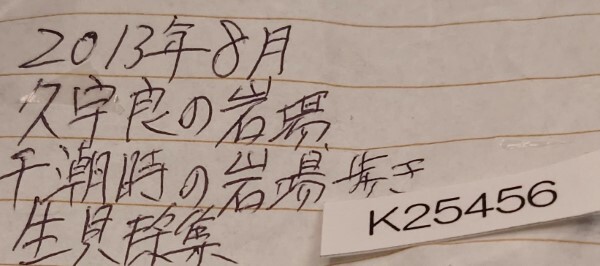 2013年8月
久宇良の岩場
干潮時の岩場歩き
生貝採集
K25456